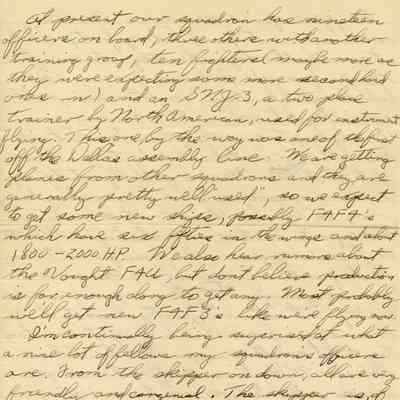 At present our squadron has nineteen
officers on board, three others with another
training group, ten fighters (maybe more as
they were expecting some more second hand
ones in) and an SNJ-3, a two place
trainer by North American, used for instrument
flying. This one, by the way was one of the first
off the Dallas assembly line. We are getting
planes from other squadrons and they are
generally pretty well "used", so we expect
to get some new ships, possibly F4F4's
which have six fifties in the wings and about
1800-2000 HP. We also hear rumors about
the Vought F4U but don't believe production
is far enough along to get any. Most probably
we'll get new F4F3's like we're flying now.
I'm continually being surprised at what
a nice lot of fellows my squadron officers
are. From the skipper on down, all are very
friendly and congenial. The skipper is, of